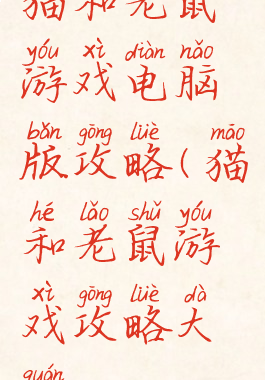 猫和老鼠
yóu xì diàn nǎo
游戏电脑
bǎn gōng lüè māo
版攻略(猫
hé lǎo shǔ yóu
和老鼠游
xì gōng lüè dà
戏攻略大
quán